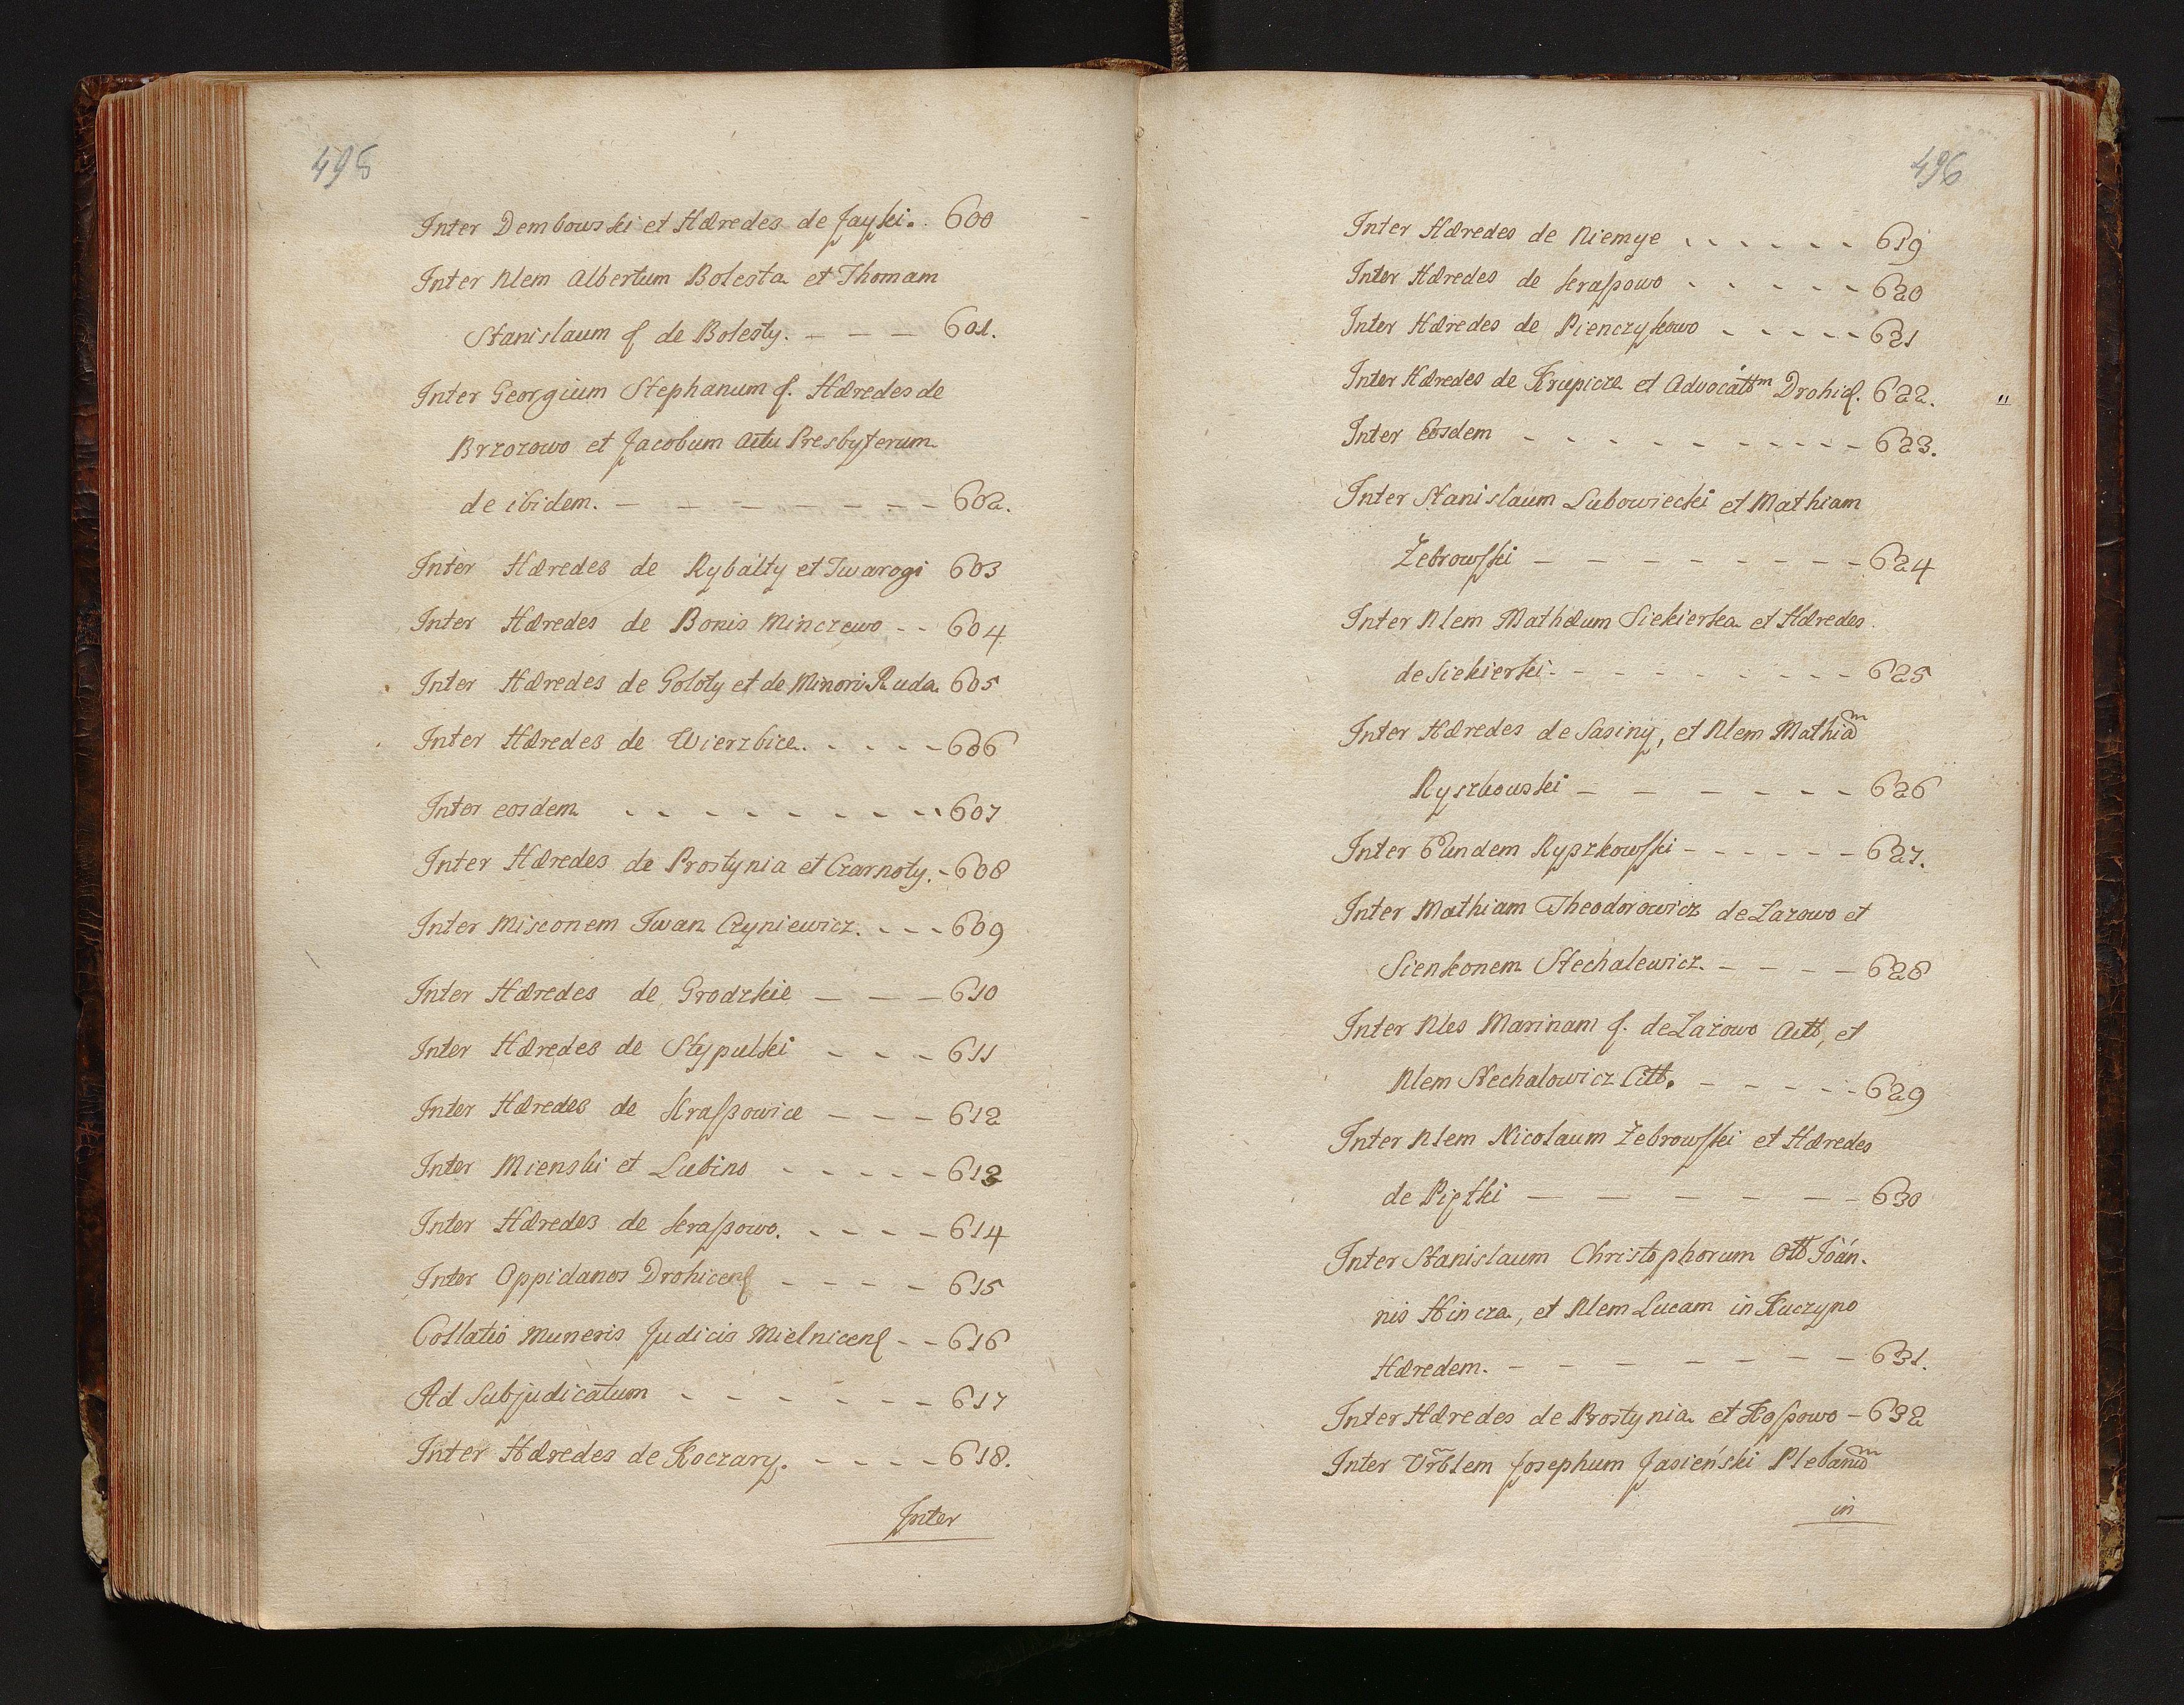 495
Inter Dembowski et Hæredes de Jayki. . 600
Inter Nlem Albertum Bolesta et Thomam
Stanislaum ꝭ de Bolesty. - - - 601.
Inter Georgium Stephanum ꝭ. Hæredes de
Brzozowo et Jacobum Actu Presbyterum
de ibidem. - - - - - - - 602.
Inter Hæredes de Rybalty et Twarogi 603
Inter Hæredes de Bonis Minczewo - - 604
Inter Hæredes de Goloty et de Minori Ruda 605
Inter Hæredes de Wierzbice. - - - - 606
Inter eosdem - - - - - - - - 607
Inter Hæredes de Prostynia et Czarnoty. - 608
Inter Misconem Iwan Czyniewicz. - - - 609
Inter Hæredes de Grodzkie - - - 610
Inter Hæredes de Stypulki - - - 611
Inter Hæredes de Kraſsowice - - - 612
Inter Mienski et Lubino - - - - - 613
Inter Hæredes de kraſsowo. - - - - 614
Inter Oppidanos Drohicenꝭ - - - - 615
Collatio Muneris Judicis Mielnicenꝭ - - 616
Ad Subjudicatum - - - - - - 617
Inter Hæredes de Koczary. - - - - 618.
Inter
496
Inter Hæredes de Niemye . . . . . . 619
Inter Hæredes de kraſsowo - - - - - 620
Inter Hæredes de Pienczykowo - - - - - 621
Inter Hæredes de Krupice et Advocatt͞m Drohiꝭ. 622. "
Inter Eosdem - - - - - - - - - 623.
Inter Stanislaum Lubowiecki et Mathiam
Żebrowſki - - - - - - - - 624
Inter Nlem Mathæum Siekierka et Hæredes
de Siekierki. - - - - - - - - 625
Inter Hæredes de Sasiny, et Nlem Mathiam
Ryszkowski - - - - - - - 626
Inter Eundem Ryszkowſki - - - - - - 627.
Inter Mathiam Theodorowicz de Lazowo et
Sienkonem Stechalewicz. - - - - 628
Inter Nles Marinam ꝭ. de Lazowo Actt, et
Nlem Stechalowicz Citt. - - - - - 629
Inter Nlem Nicolaum Żebrowſki et Hæredes
de Piętki - - - - - - 630
Inter Stanislaum Christophorum Ott Joán.
nis Hincza, et Nlem Lucam in Kuczyno
Hæredem. - - - - - - - - 631.
Inter Hæredes de Prostynia et Koſsowo - 632
Inter Urblem Josephum Jasieński Plebanum
in